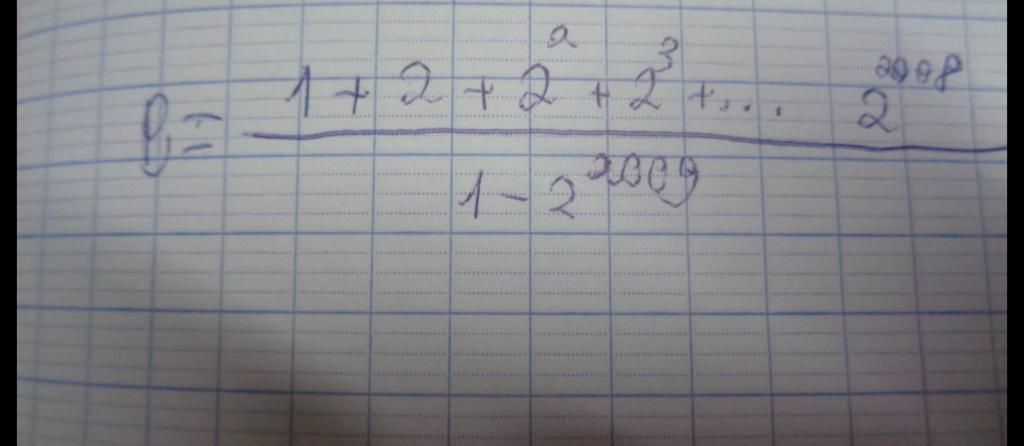 B = \frac{1 + 2 + 2^2 + 2^3 + ... 2^{2008}}{1 - 2^{2009}}